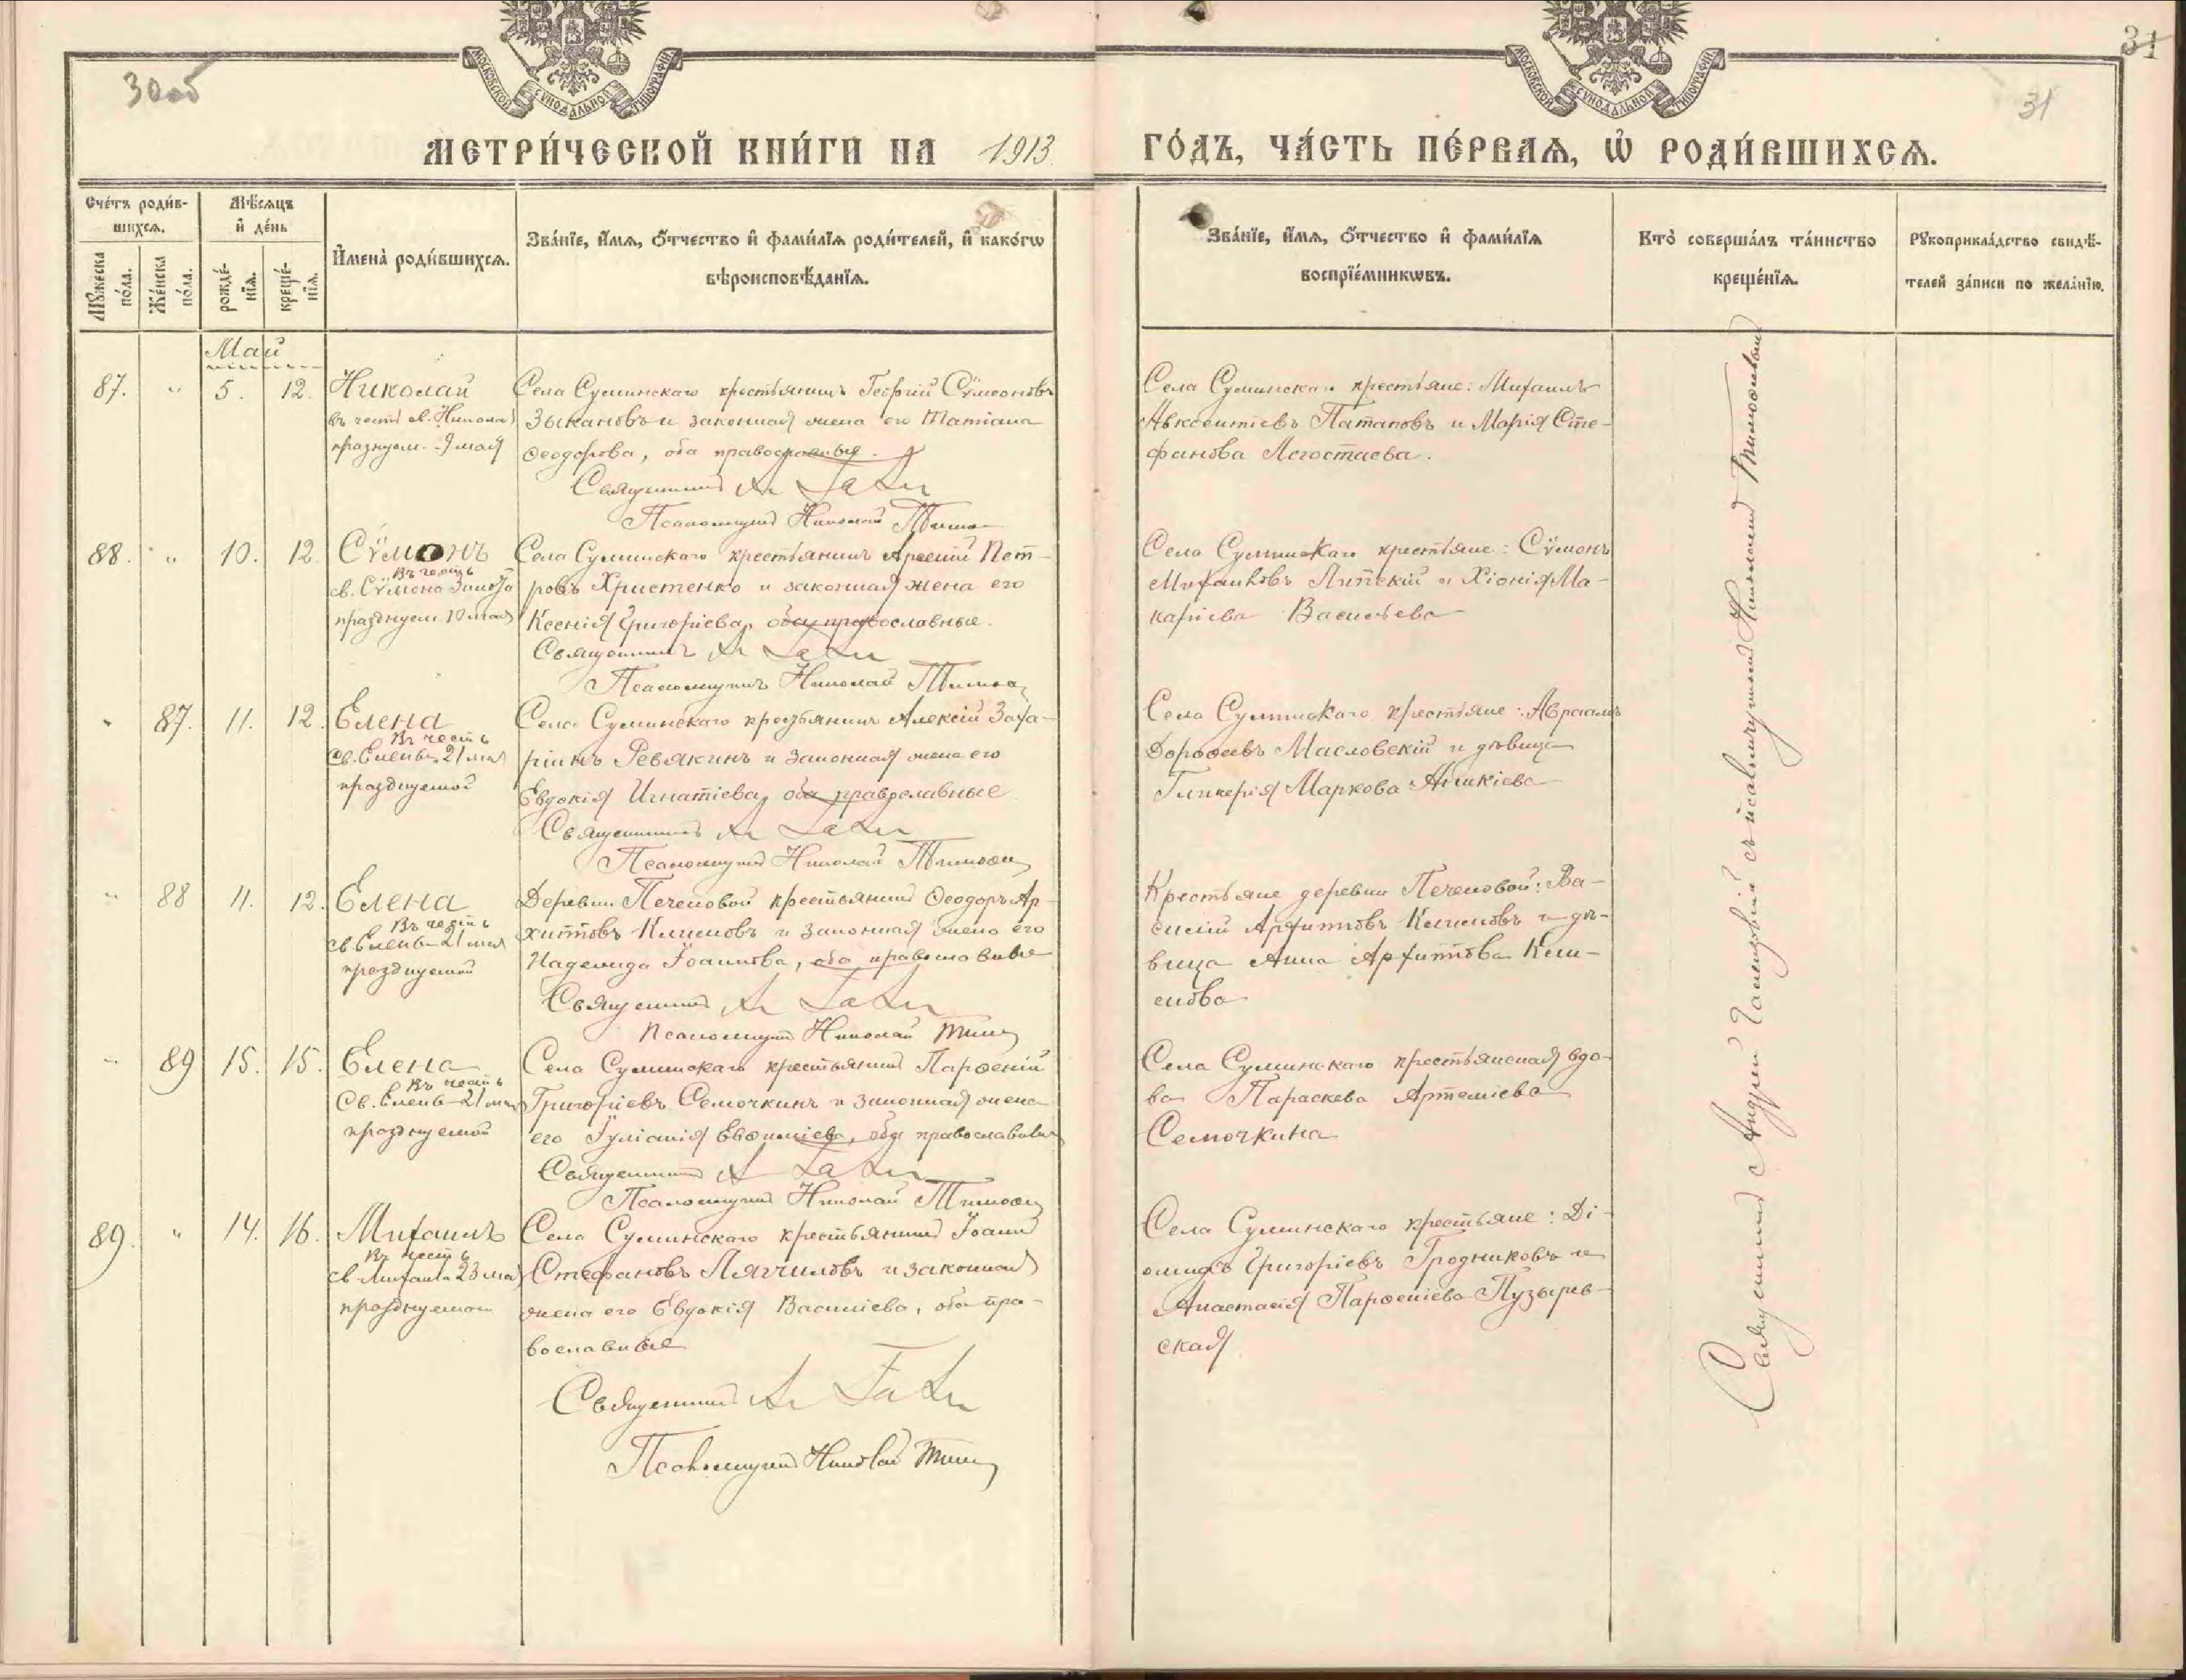 МОСКОВСКОЙ СУНОДАЛЬНОЙ ТИПОГРАФІИ
МОСКОВСКОЙ СУНОДАЛЬНОЙ ТИПОГРАФІИ
30об
31
31
МЕТРИ́ЧЕСКОЙ КНИ́ГИ НА 1913 ГО́ДЪ, ЧА́СТЬ ПЕ́РВАѦ, Ѡ РОДИ́ВШИХСѦ.
Сче́тъ роди́в-
шихсѧ.
Мѣ́сѧцъ
и҆ де́нь
Мꙋ́жеска по́ла.
Же́нска по́ла.
рожде́-
нїѧ.
креще́-
нїѧ.
И҆мена̀ роди́вшихсѧ.
Зва́нїе, и҆́мѧ, ѻ҆́тчество и҆ фами́лїѧ роди́телей, и҆ како́гѡ
вѣроисповѣ́данїѧ.
Зва́нїе, и҆́мѧ, ѻ҆́тчество и҆ фами́лїѧ
воспрїе́мникѡвъ.
Кто̀ соверша́лъ та́инство
креще́нїѧ.
Рꙋкоприкла́дство свидѣ́-
телей за́писи по жела́нїю.
Май
87. " 5. 12. Николай
въ честь св. Николая
празднуем. 9 мая
Села Суминскаго крестьянинъ Георгій Сѵмеоновъ
Зыкановъ и законная жена его Татіана
Ѳеодорова, оба православные.
Священникъ
Псаломщикъ Николай
Села Суминскаго крестьяне: Михаилъ
Авксентіевъ Патаповъ и Марія Сте-
фанова Легостаева.
88. " 10. 12. Сѵмонъ
Въ честь
св. Сѵмона Зилота
празднуем. 10 мая
Села Суминскаго крестьянинъ Арсеній Пет-
ровъ Христенко и законная жена его
Ксенія Григоріева, оба православные.
Священникъ
Псаломщикъ Николай
Села Суминскаго крестьяне: Сѵмонъ
Михаиловъ Липскій и Хіонія Ма-
каріева Васильева
" 87. 11. 12. Елена
Въ честь
св. Елены 21 мая
празднуемой
Села Суминскаго крестьянинъ Алексій Заха-
ріинъ Ревякинъ и законная жена его
Евдокія Игнатіева, оба православные
Священникъ
Псаломщикъ Николай
Села Суминскаго крестьяне: Авраамъ
Дороѳеевъ Масловскій и дѣвица
Гликерія Маркова Аникіева
" 88 11. 12. Елена
Въ честь
св. Елены 21 мая
празднуемой
Деревни Печеновой крестьянинъ Ѳеодоръ Ар-
хиповъ Клименовъ и законная жена его
Надежда Іоаннова, оба православные
Священникъ
Псаломщикъ Николай
Крестьяне деревни Печеновой: Ва-
силій и дѣ-
вица Анна
" 89 15. 15. Елена
Въ честь
св. Елены 21 мая
празднуемой
Села Суминскаго крестьянинъ Парѳеній
Григоріевъ Семочкинъ и законная жена
его Іуліанія Евѳиміева, оба православные
Священникъ
Псаломщикъ Николай
Села Суминскаго крестьянская вдо-
ва Параскева Артеміева
Семочкина
89. " 14. 16. Михаилъ
Въ честь
св. Михаила 23 мая
празднуемаго
Села Суминскаго крестьянинъ Іоаннъ
Стефановъ и законная
жена его Евдокія Василіева, оба пра-
вославные
Священникъ
Псаломщикъ Николай
Села Суминскаго крестьяне: Ді-
омидъ Григоріевъ Гродниковъ и
Анастасія Парѳеніева Пузырев-
ская
Священникъ Андрей съ псаломщикомъ Николаемъ